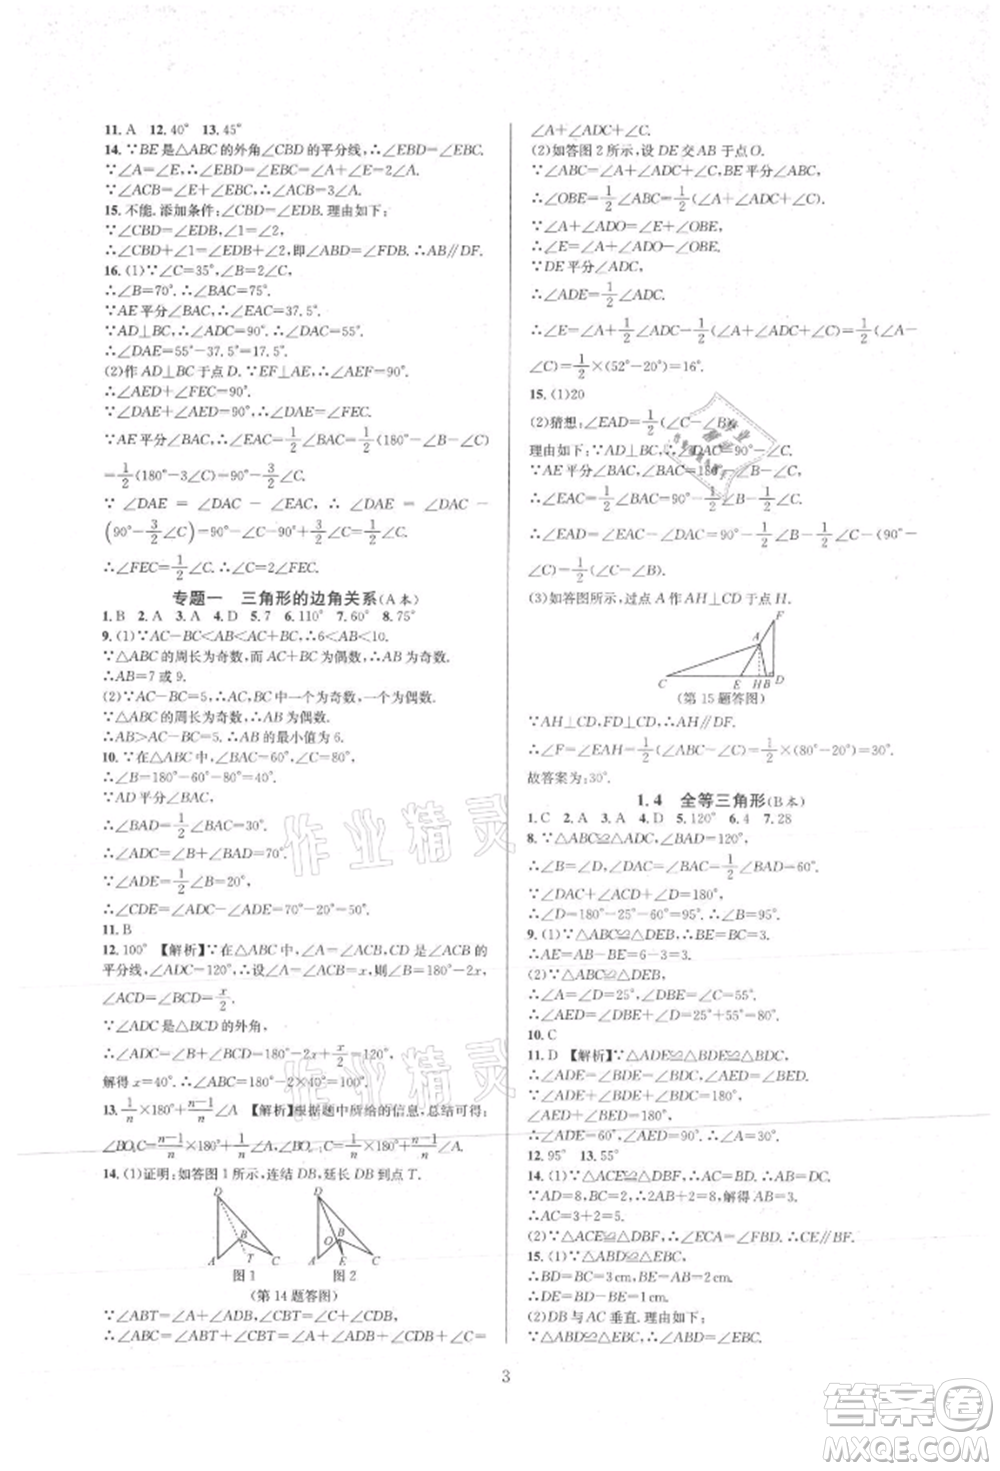 11. A　12. 40°　13. 45°
14. ∵BE是△ABC的外角∠CBD的平分线,∴∠EBD=∠EBC.
∵∠A=∠E,∴∠EBD=∠A+∠E=2∠A.
∵∠ACB=∠E+∠EBC,∴∠ACB=3∠A.
15. 不能. 添加条件:∠CBD=∠EDB. 理由如下:
∵∠CBD=∠EDB,∠1=∠2,
∴∠CBD+∠1=∠EDB+∠2,即∠ABD=∠FDB.∴AB∥DF.
16. (1)∵∠C=35°,∠B=2∠C,
∴∠B=70°.∴∠BAC=75°.
∵AE平分∠BAC,∴∠EAC=37.5°.
∵AD⊥BC,∴∠ADC=90°.∴∠DAC=55°.
∴∠DAE=55°-37.5°=17.5°.
(2)作AD⊥BC于点D.∵EF⊥AE,∴∠AEF=90°.
∴∠AED+∠FEC=90°.
∵∠DAE+∠AED=90°,∴∠DAE=∠FEC.
∵AE平分∠BAC,∴∠EAC=1/2∠BAC=1/2(180°-∠B-∠C)
=1/2(180°-3∠C)=90°-3/2∠C.
∵ ∠DAE = ∠DAC - ∠EAC,∴ ∠DAE = ∠DAC -
(90°-3/2∠C)=90°-∠C-90°+3/2∠C=1/2∠C.
∴∠FEC=1/2∠C.
专题一　三角形的边角关系(A本)
1. B　2. A　3. A　4. D　5. 7　6. 110°　7. 60°　8. 75°
9. (1)∵AC-BC<AB<AC+BC,∴6<AB<10.
∵△ABC的周长为奇数,而AC+BC为偶数,∴AB为奇数.
∴AB=7或9.
(2)∵AC-BC=5,∴AC,BC中一个为奇数,一个为偶数.
∵△ABC的周长为奇数,∴AB为偶数.
∴AB>AC-BC=5.∴AB的最小值为6.
10. ∵在△ABC中,∠BAC=60°,∠C=80°,
∴∠B=180°-60°-80°=40°.
∵AD平分∠BAC,
∴∠BAD=1/2∠BAC=30°.
∴∠ADC=∠B+∠BAD=70°.
∵∠ADE=1/2∠B=20°,
∴∠CDE=∠ADC-∠ADE=70°-20°=50°.
11. B
12. 100°　【解析】∵在△ABC中,∠A=∠ACB,CD是∠ACB的
平分线,∠ADC=120°,∴设∠A=∠ACB=x,则∠B=180°-2x,
∠ACD=∠BCD=x/2.
∵∠ADC是△BCD的外角,
∴∠ADC=∠B+∠BCD=180°-2x+x/2=120°,
解得x=40°.∴∠B=180°-2x=100°.
13. 1/n×180°+n-1/n∠A　【解析】根据题中所给的信息,总结可得:
=1/n×180°+n-1/n∠A.
14. (1)证明:如答图1所示,连结DB,延长DB到点T.
D
B
A
T
C
D
O
B
A
E
C
图1
图2
(第14题答图)
∵∠ABT=∠A+∠ADB,∠CBT=∠C+∠CDB,
∴∠ABC=∠ABT+∠CBT=∠A+∠ADB+∠CDB+∠C=
∠A+∠ADC+∠C.
(2)如答图2所示,设DE交AB于点O.
∵∠ABC=∠A+∠C+∠ADC,BE平分∠ABC,
∴∠OBE=1/2∠ABC=1/2(∠A+∠C+∠ADC).
∵∠DOB=∠A+∠ADO=∠E+∠OBE,
∴∠E=∠A+∠ADO-∠OBE.
∵DE平分∠ADC,
∴∠ADE=1/2∠ADC.
∴∠E=∠A+1/2∠ADC-1/2(∠A+∠C+∠ADC)=1/2(∠A-
∠C)=1/2×(52°-20°)=16°.
15. (1)20
(2)猜想:∠EAD=1/2(∠C-∠B).
理由如下:∵AD⊥BC,∴∠ADC=90°.
∵AE平分∠BAC,∠BAC=180°-∠B-∠C,
∴∠EAC=1/2∠BAC=90°-1/2∠B-1/2∠C.
∴∠EAD=∠EAC-∠DAC=90°-1/2∠B-1/2∠C-(90°-
∠C)=1/2(∠C-∠B).
(3)如答图所示,过点A作AH⊥CD于点H.
F
A
C
E
H
B
D
(第15题答图)
∵AH⊥CD,FD⊥CD,∴AH∥DF.
∴∠F=∠EAH=1/2(∠ABC-∠C)=1/2×(80°-20°)=30°.
故答案为:30°.
1.4　全等三角形(B本)
1. C　2. A　3. A　4. D　5. 120°　6. 4　7. 28
8. ∵△ABC≌△DAE,∠BAD=60°,
∴∠B=∠D,∠BAC=∠DAE=1/2∠BAD=60°.
∵∠DAC+∠ACD+∠D=180°,
∴∠D=180°-25°-60°=95°.∴∠B=95°.
9. (1)∵△ABC≌△DEB,∴BE=BC=3.
∴AE=AB-BE=6-3=3.
(2)∵△ABC≌△DEB,
∴∠A=∠D=25°,∠DBE=∠C=55°.
∴∠AED=∠DBE+∠D=25°+55°=80°.
10. C
11. D　【解析】∵△ADE≌△BDE≌△BDC,
∴∠ADE=∠BDE=∠BDC,∠AED=∠BED.
∵∠ADE+∠BDE+∠BDC=180°,
∠AED+∠BED=180°,
∴∠ADE=60°,∠AED=90°.∴∠A=30°.
12. 95°　13. 55°
14. (1)∵△ACE≌△DBF,∴AC=BD.∴AB=DC.
∵AD=8,BC=2,∴2AB+2=8,解得AB=3.
∴AC=3+2=5.
(2)∵△ACE≌△DBF,∴∠ECA=∠FBD.∴CE∥BF.
15. (1)∵△ABD≌△EBC,
∴BD=BC=3 cm,BE=AB=2 cm.
∴DE=BD-BE=1 cm.
(2)DB与AC垂直. 理由如下:
∵△ABD≌△EBC,∴∠ABD=∠EBC.
3
作业精灵
作业精灵
答案圈
MXQE.COM